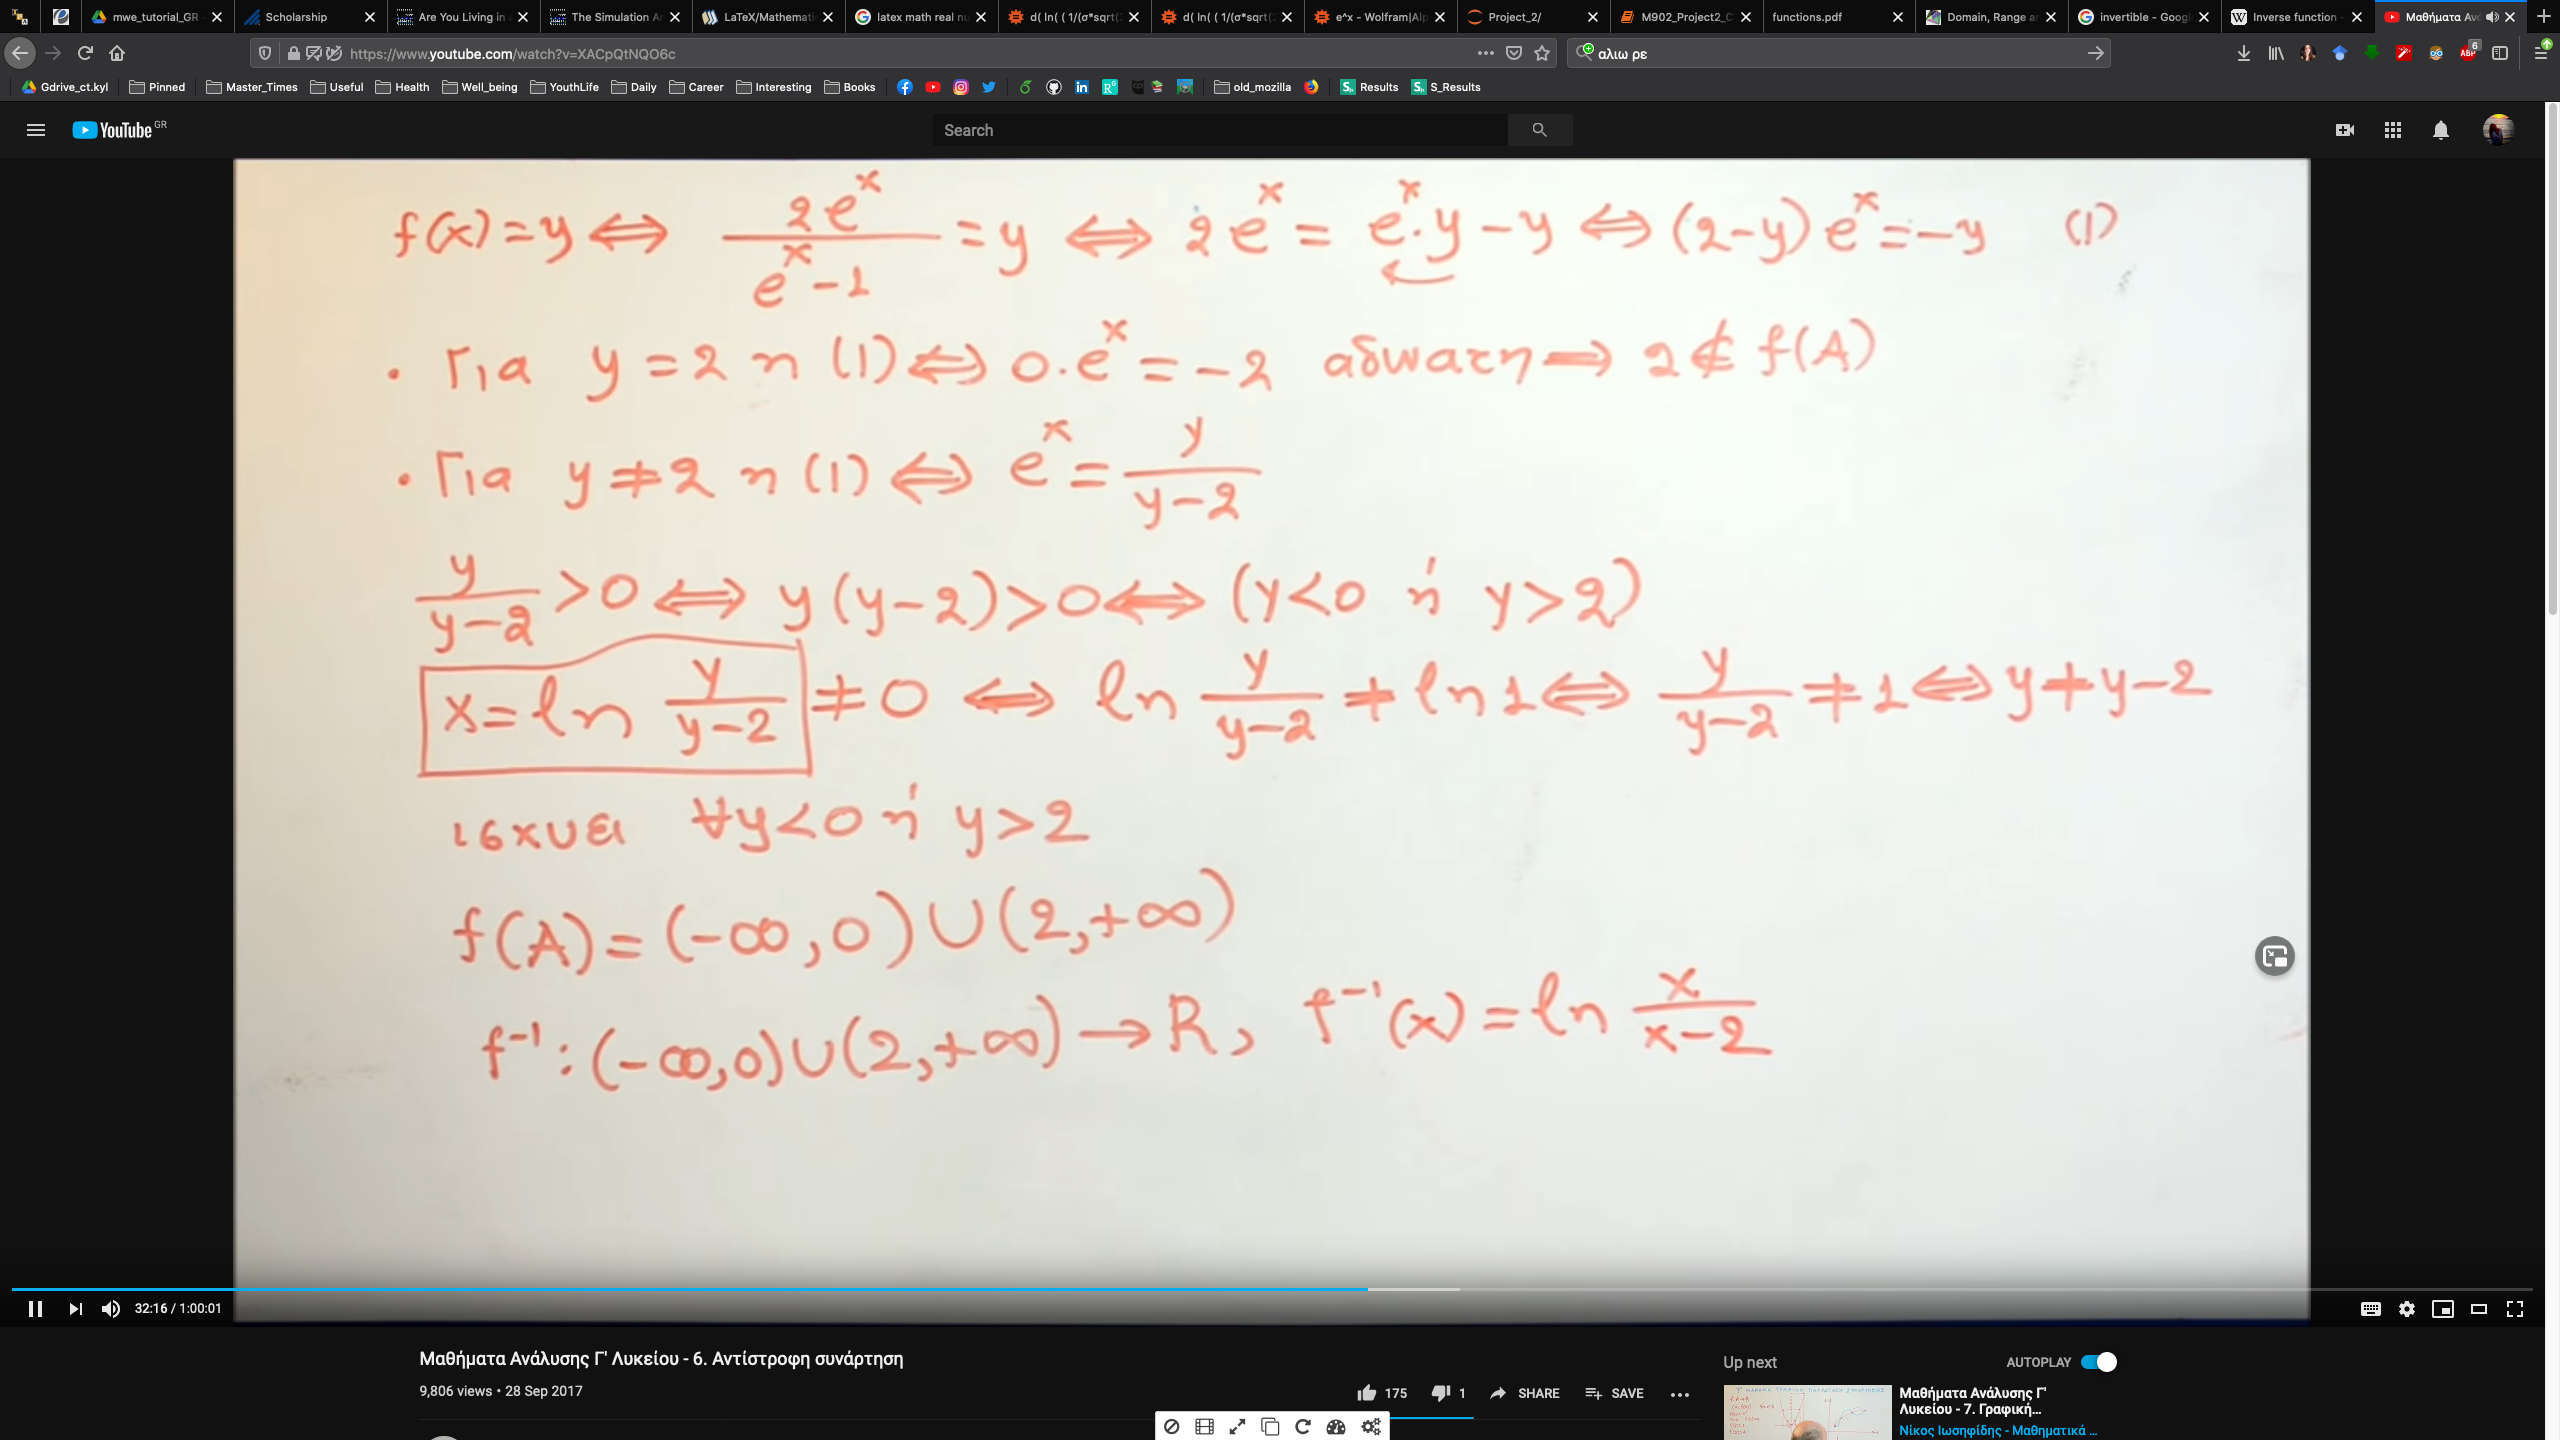 mwe_tutorial_GR Scholarship Are You Living in The Simulation A LaTeX/Mathemati latex math real nu d( ln( ( 1/(σ*sqrt(2 d( ln( ( 1/(σ*sqrt(2 e^x - Wolfram|Alp Project_2/ M902_Project2_C functions.pdf Domain, Range an invertible - Googl Inverse function - Μαθήματα Ανά
https://www.youtube.com/watch?v=XACpQtNQO6c αλιω ρε 6
Gdrive_ct.kyl Pinned Master_Times Useful Health Well_being YouthLife Daily Career Interesting Books old_mozilla Results S_Results
YouTube GR Search
f(x)=y ⇔ 2e^x/(e^x-1) = y ⇔ 2e^x = e^x·y-y ⇔ (2-y)e^x=-y (1)
• Για y=2 η (1) ⇔ 0·e^x=-2 αδυνατη ⇒ 2∉f(A)
• Για y≠2 η (1) ⇔ e^x = y/(y-2)
y/(y-2) >0 ⇔ y(y-2)>0 ⇔ (y<0 ή y>2)
x=ln y/(y-2) ≠0 ⇔ ln y/(y-2) ≠ ln1 ⇔ y/(y-2) ≠1 ⇔ y≠y-2
ισχυει ∀y<0 ή y>2
f(A)=(-∞,0)∪(2,+∞)
f^-1:(-∞,0)∪(2,+∞)→R, f^-1(x)=ln x/(x-2)
32:16 / 1:00:01
Μαθήματα Ανάλυσης Γ' Λυκείου - 6. Αντίστροφη συνάρτηση
9,806 views • 28 Sep 2017
175 1 SHARE SAVE
Up next AUTOPLAY
Μαθήματα Ανάλυσης Γ'
Λυκείου - 7. Γραφική...
Νίκος Ιωσηφίδης - Μαθηματικά ...